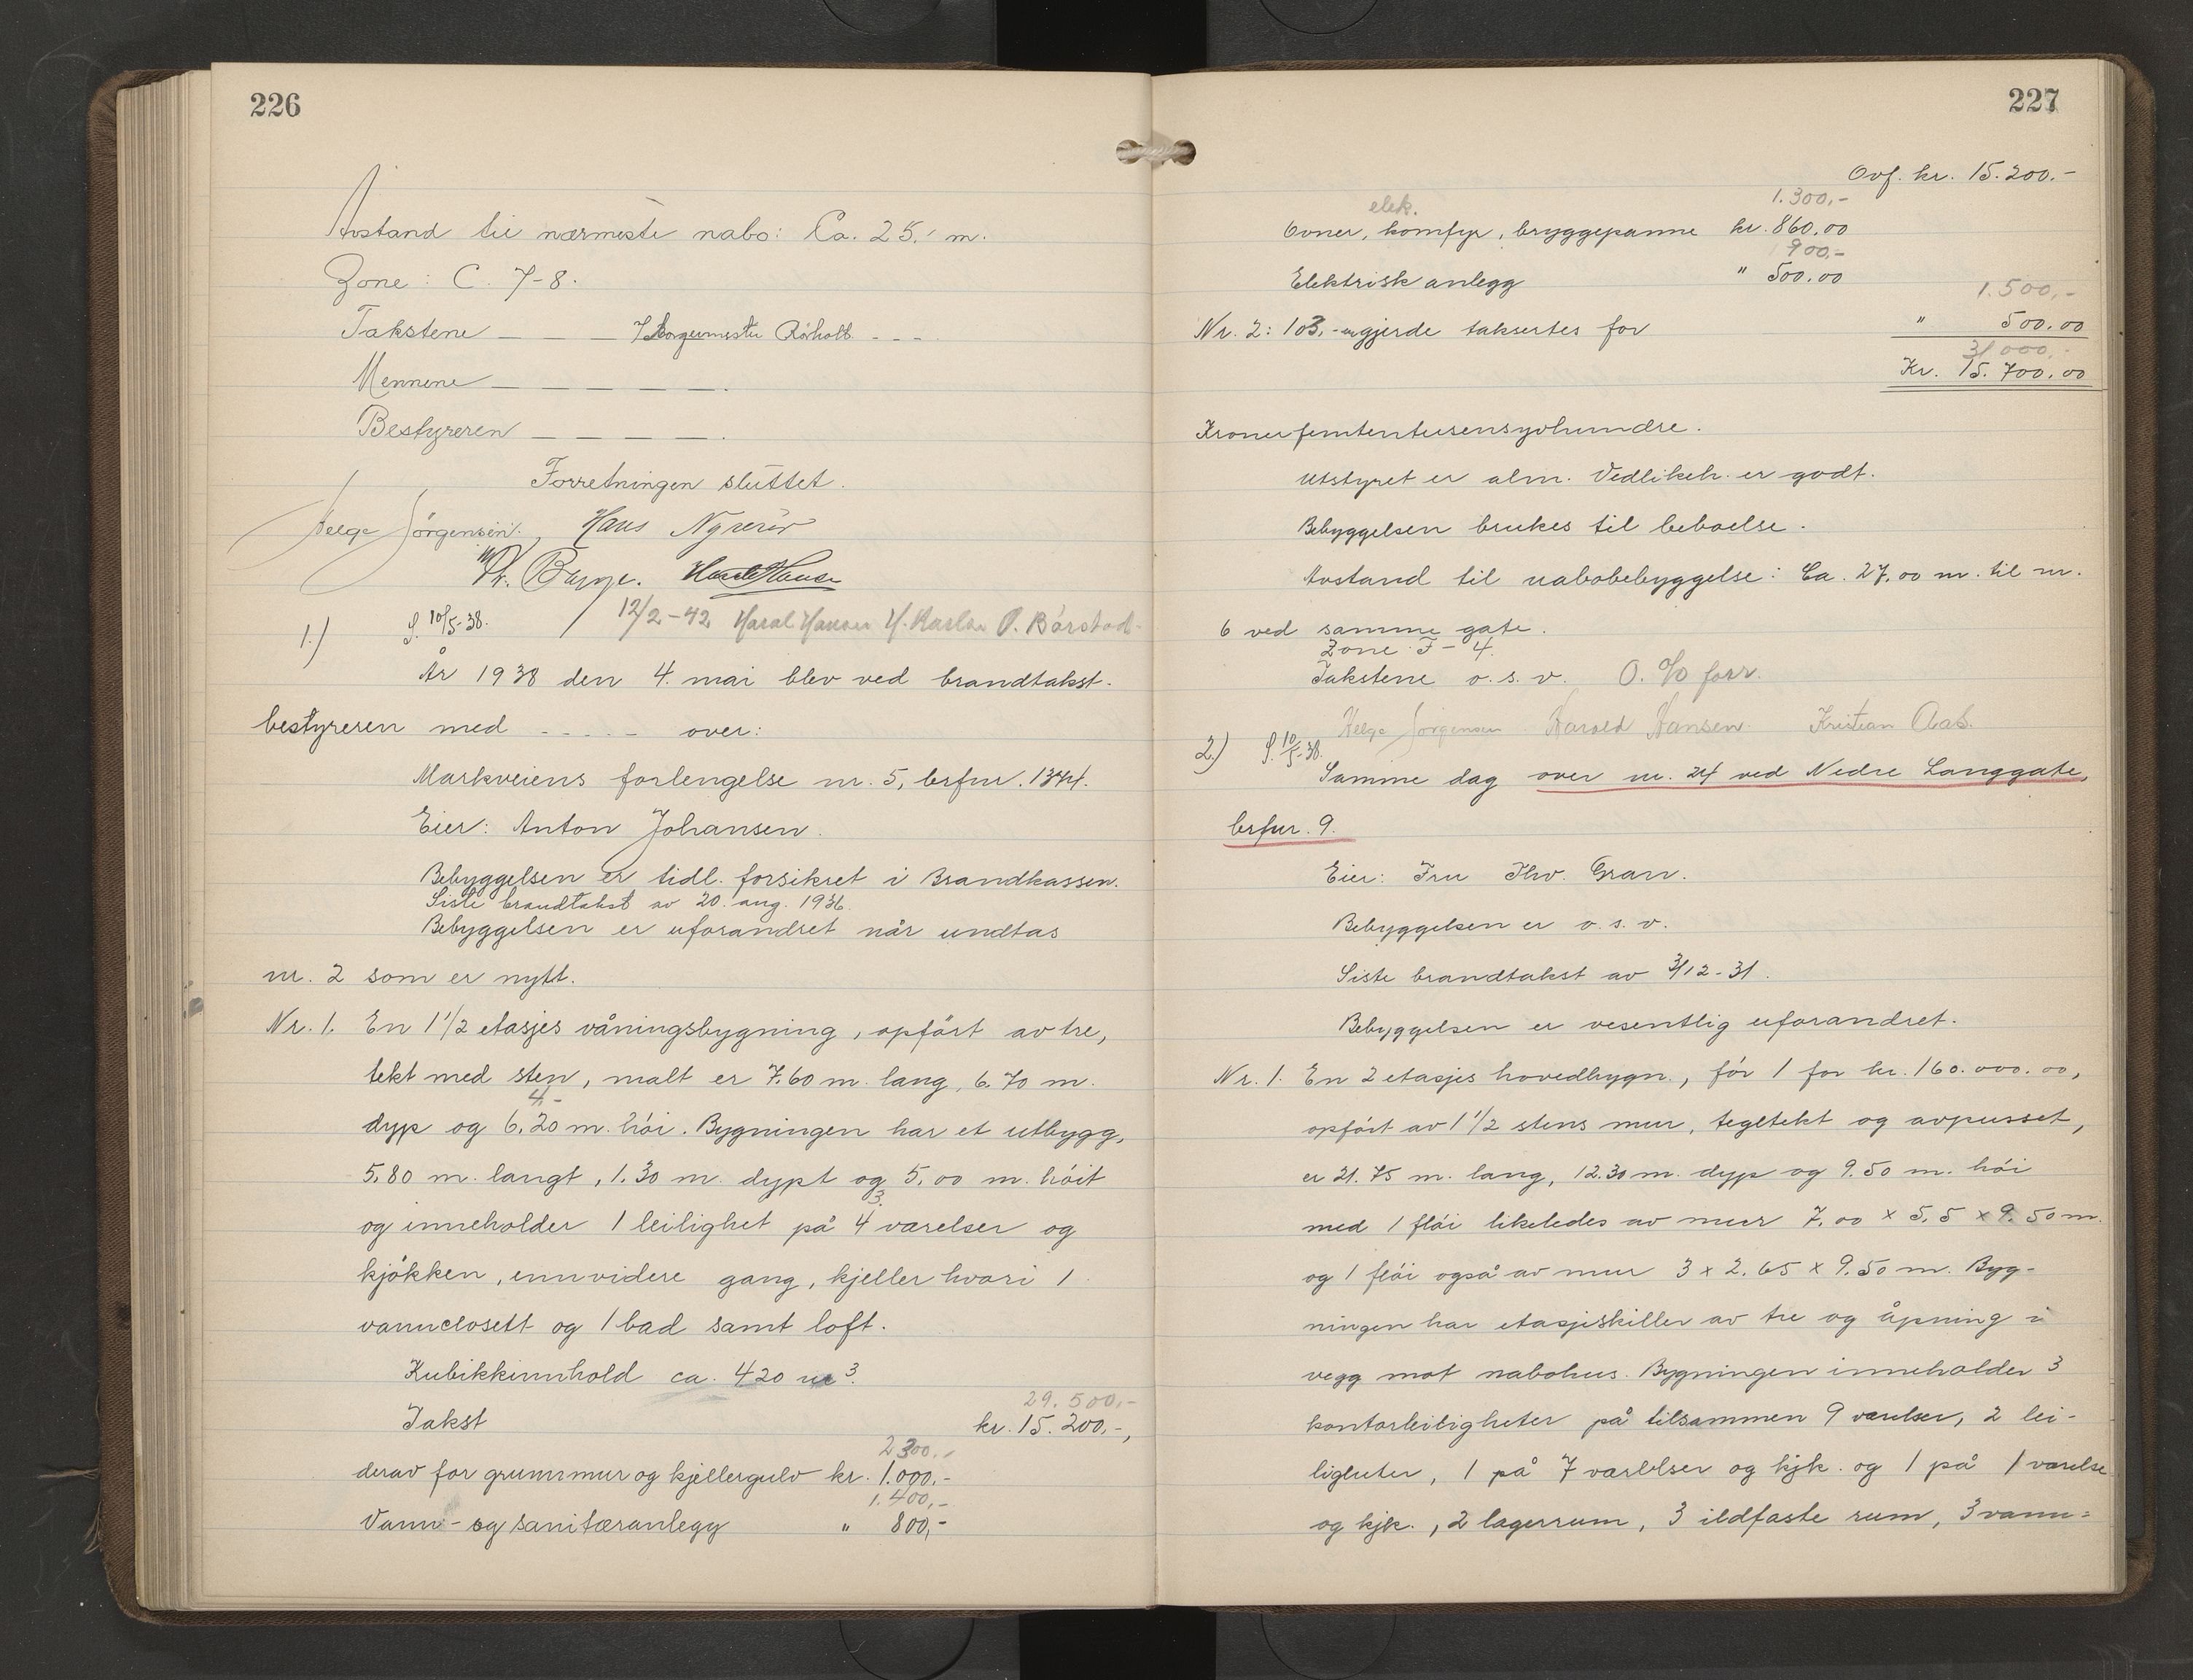 226
Avstand til nærmeste nabo: Ca. 25,- m.
Zone: C. 7-8.
Takstene — — — Borgermester Rörholt - - -
Mennene — — — — —.
Bestyreren — — — —.
Forretningen sluttet.
Helge Jörgensen. Hans
Harald Hansen
12/2-42 Haral Hansen H. Karlsen O. Bårstad
1.) S. 10/5-38.
År 1938 den 4. mai blev ved brandtakst-
bestyreren med - - - - - over:
Markveiens forlengelse nr. 5, brfnr. 1344.
Eier: Anton Johansen.
Bebyggelsen er tidl. forsikret i Brandkassen.
Siste brandtakst av 20. aug. 1936.
Bebyggelsen er uforandret når undtas
nr. 2 som er nytt.
Nr. 1. En 1 1/2 etasjes våningsbygning, opfört av tre,
tekt med sten, målt er 7.60 m. lang, 6.70 m.
4.-
dyp og 6.20 m. höi. Bygningen har et utbygg,
5.80 m. langt, 1.30 m. dypt og 5,00 m. höit
3
og inneholder 1 leilighet på 4 værelser og
kjökken, ennvidere gang, kjeller hvori 1
vannclosett og 1 bad samt loft.
Kubikkinnhold ca. 420 m3.
29.500,-
Takst kr. 15.200.-,
2300.-
derav for grunnmur og kjellergulv kr. 1.000,-
1.400,-
Vann- og sanitæranlegg " 800,-
227
Ovf. kr. 15.200.-
elek. 1.300,-
Ovner, komfyr, bryggepanne kr. 860,00
900,-
Elektrisk anlegg " 500,00
1.500,-
Nr. 2: 103,- m gjerde taksertes for " 500,00
31000,-
Kr. 15.700,00
Kroner femtentusensyvhundre.
Utstyret er alm. Vedlikeh. er godt.
Bebyggelsen brukes til beboelse.
Avstand til nabobebyggelse: Ca. 27,00 m. til nr.
6 ved samme gate.
Zone F-4.
Takstene o. s. v. O. % forr.
Helge Jörgensen Harald Hansen Kristian Aas.
2.) S. 10/5-38.
Samme dag over nr. 24 ved Nedre Langgate,
brfnr. 9.
Eier: Fru Thv. Gran.
Bebyggelsen er o. s. v.
Siste brandtakst av 3/12-31.
Bebyggelsen er vesentlig uforandret.
Nr. 1. En 2 etasjes hovedbygn., för 1 for kr. 160.000.00,
opfört av 1 1/2 stens mur, tegltekt og avpusset,
er 21.75 m. lang, 12.30 m. dyp og 9.50 m. höi
med 1 flöi likeledes av mur 7,00 x 5,5 x 9.50 m.
og 1 flöi også av mur 3 x 2.65 x 9.50 m. Byg-
ningen har etasjeskiller av tre og åpning i
vegg mot nabohus. Bygningen inneholder 3
kontorleiligheter på tilsammen 9 værelser, 2 lei-
ligheter, 1 på 7 værelser og kjk. og 1 på 1 værelse
og kjk., 2 lagerrum, 3 ildfaste rum, 3 vann-